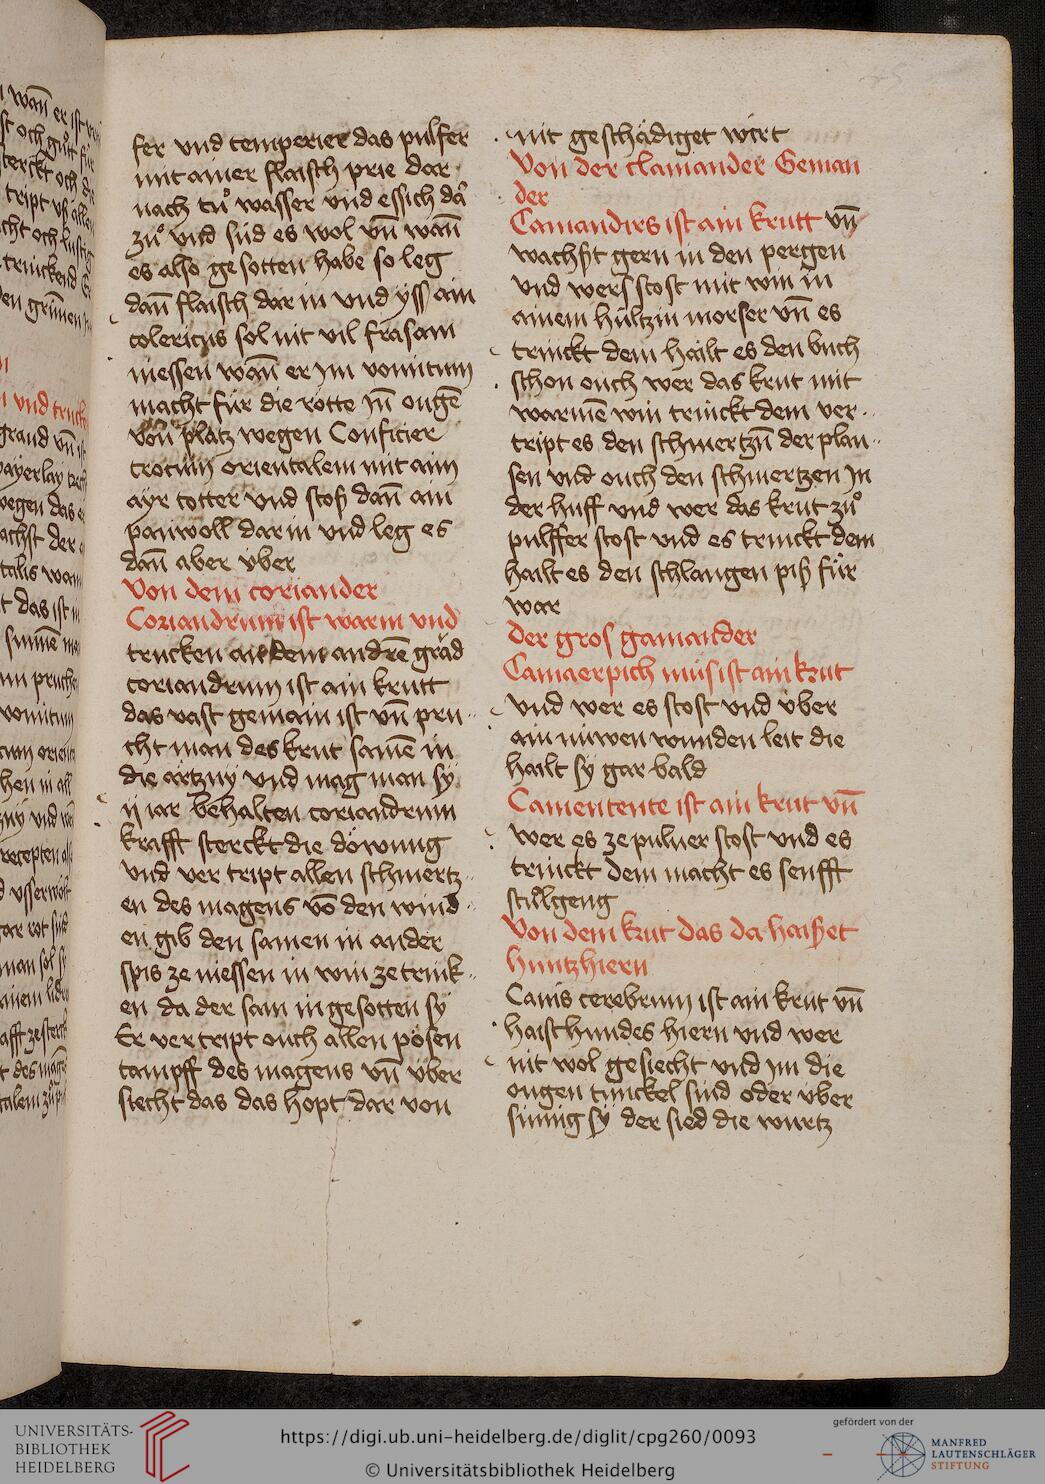 fer vnd temperier das pulfer
mit ainer flaisch prie dar
nach tů wasser vnd essich dā
zů vnd süd es wol vn̄ wan̄
es also gesotten habe so leg
dan̄ flaisch dar in vnd yss ain
colericus sol nit vil frasam
niessen wan̄ er im vomitum
macht für die rotte in̄ ougē
von platz wegen Conficier
crocum orientalem mit aim
ayr totter vnd stoß dan̄ ain
panwoll dar in vnd leg es
dan̄ aber vber
Von dem coriander
Coriandrum ist warm vnd
trucken an dem andrē grăd
coriandrum ist ain krutt
das vast gemain ist vn̄ pru
cht man des krut samē in
die artzny vnd mag man sy
ij iar behalten coriandrum
krafft sterckt die döwung
vnd ver tript allen schmertz
en des magens vō den wind
en gib den samen in ander
spis ze niessen in win ze trink
en da der sam in gesotten sy
Er ver tript ouch allen pösen
tampff des magens vn̄ vber
siecht das das hopt dar von
nit geschädiget wirt
Von der clamander Geman
der
Camandirs ist ain krutt vn̄
wachßt gern in den pergen
vnd wers stost mit win in
ainem hültzin morser vn̄ es
trinckt dem hailt es den buch
schon ouch wer das krut mit
warmē win trinckt dem ver
tript es den schmertzn̄ der plau
sen vnd ouch den schmertzen in
der huff vnd wer das krut zů
pulffer stost vnd es trinckt dem
hailt es den schlangen piß für
war
Der gros gamander
Camaerpich mus ist ain krut
vnd wer es stost vnd vber
ain nuwen wunden leit die
hailt sy gar bald
Camentente ist ain krut vn̄
wer es ze puluer stost vnd es
trinckt dem macht es senfft
stůlgeng
Von dem krut das da haißet
huntzhiern
Canis cerebrum ist ain krut vn̄
haist hundes hiern vnd wer
nit wol gesiecht vnd im die
ougen tunckel sind oder vber
sinnig sy der sied die wurtz
UNIVERSITÄTS-
BIBLIOTHEK
HEIDELBERG
https://digi.ub.uni-heidelberg.de/diglit/cpg260/0093
© Universitätsbibliothek Heidelberg
gefördert von der
MANFRED
LAUTENSCHLÄGER
STIFTUNG